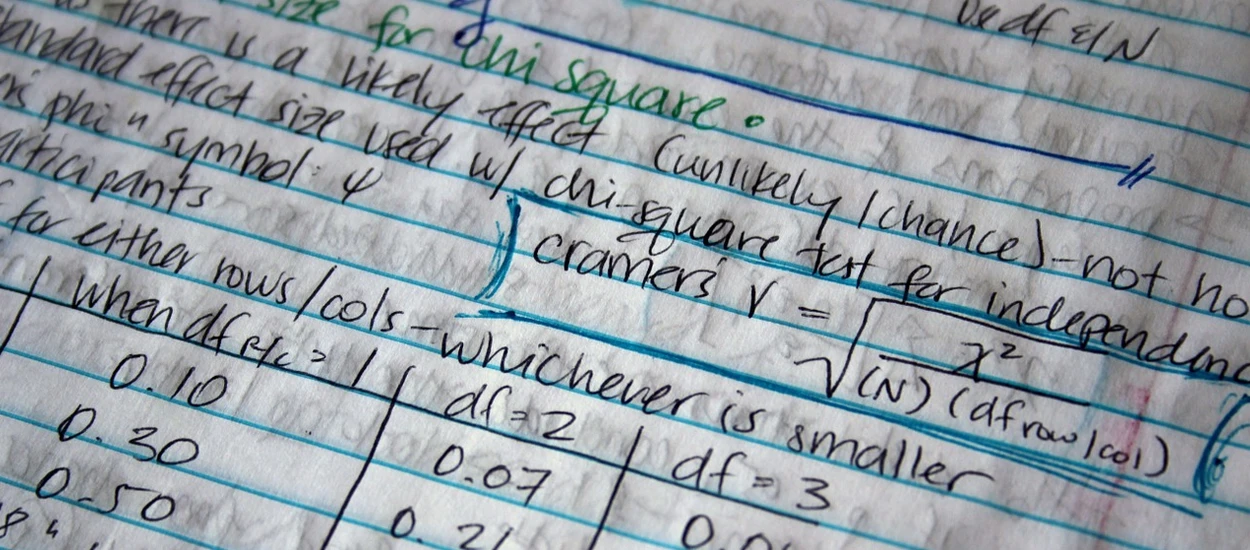 use df & N
size for chi square.
there is a likely effect (unlikely/chance)-not ho
standard effect size used w/ chi-square test for independenc
phi" symbol: φ
cramers' V = √ χ² / (N) (df row/col)
participants
for either rows/cols - whichever is smaller
when df r/c = 1 df = 2 df = 3
0.10 0.07 0.0
0.30 0.21
0.50